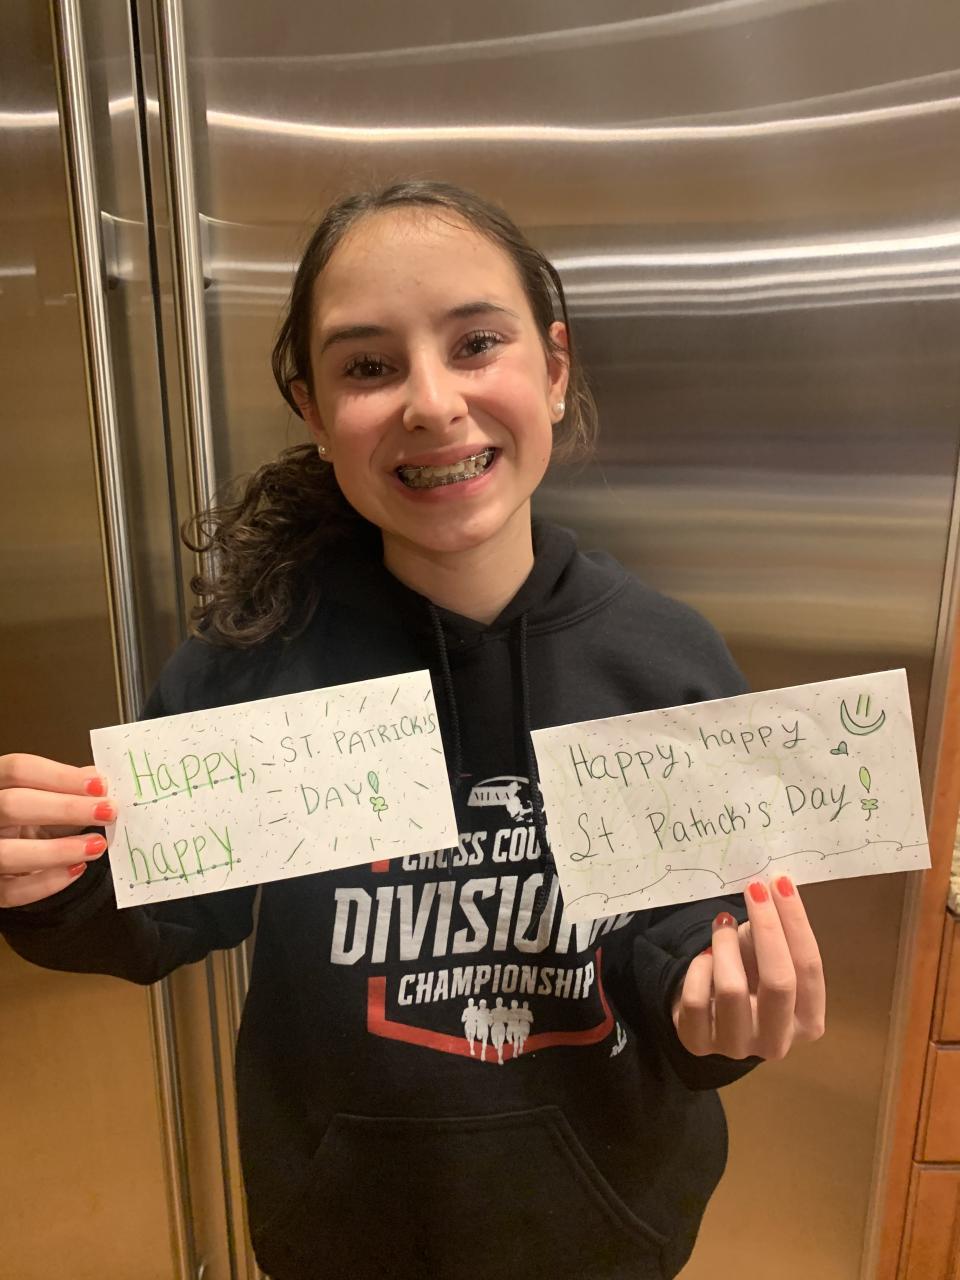 Happy,
happy
ST. PATRICK'S
DAY!
Happy, happy
St Patrick's Day!
MIAA
CROSS COU
DIVISIONAL
CHAMPIONSHIP